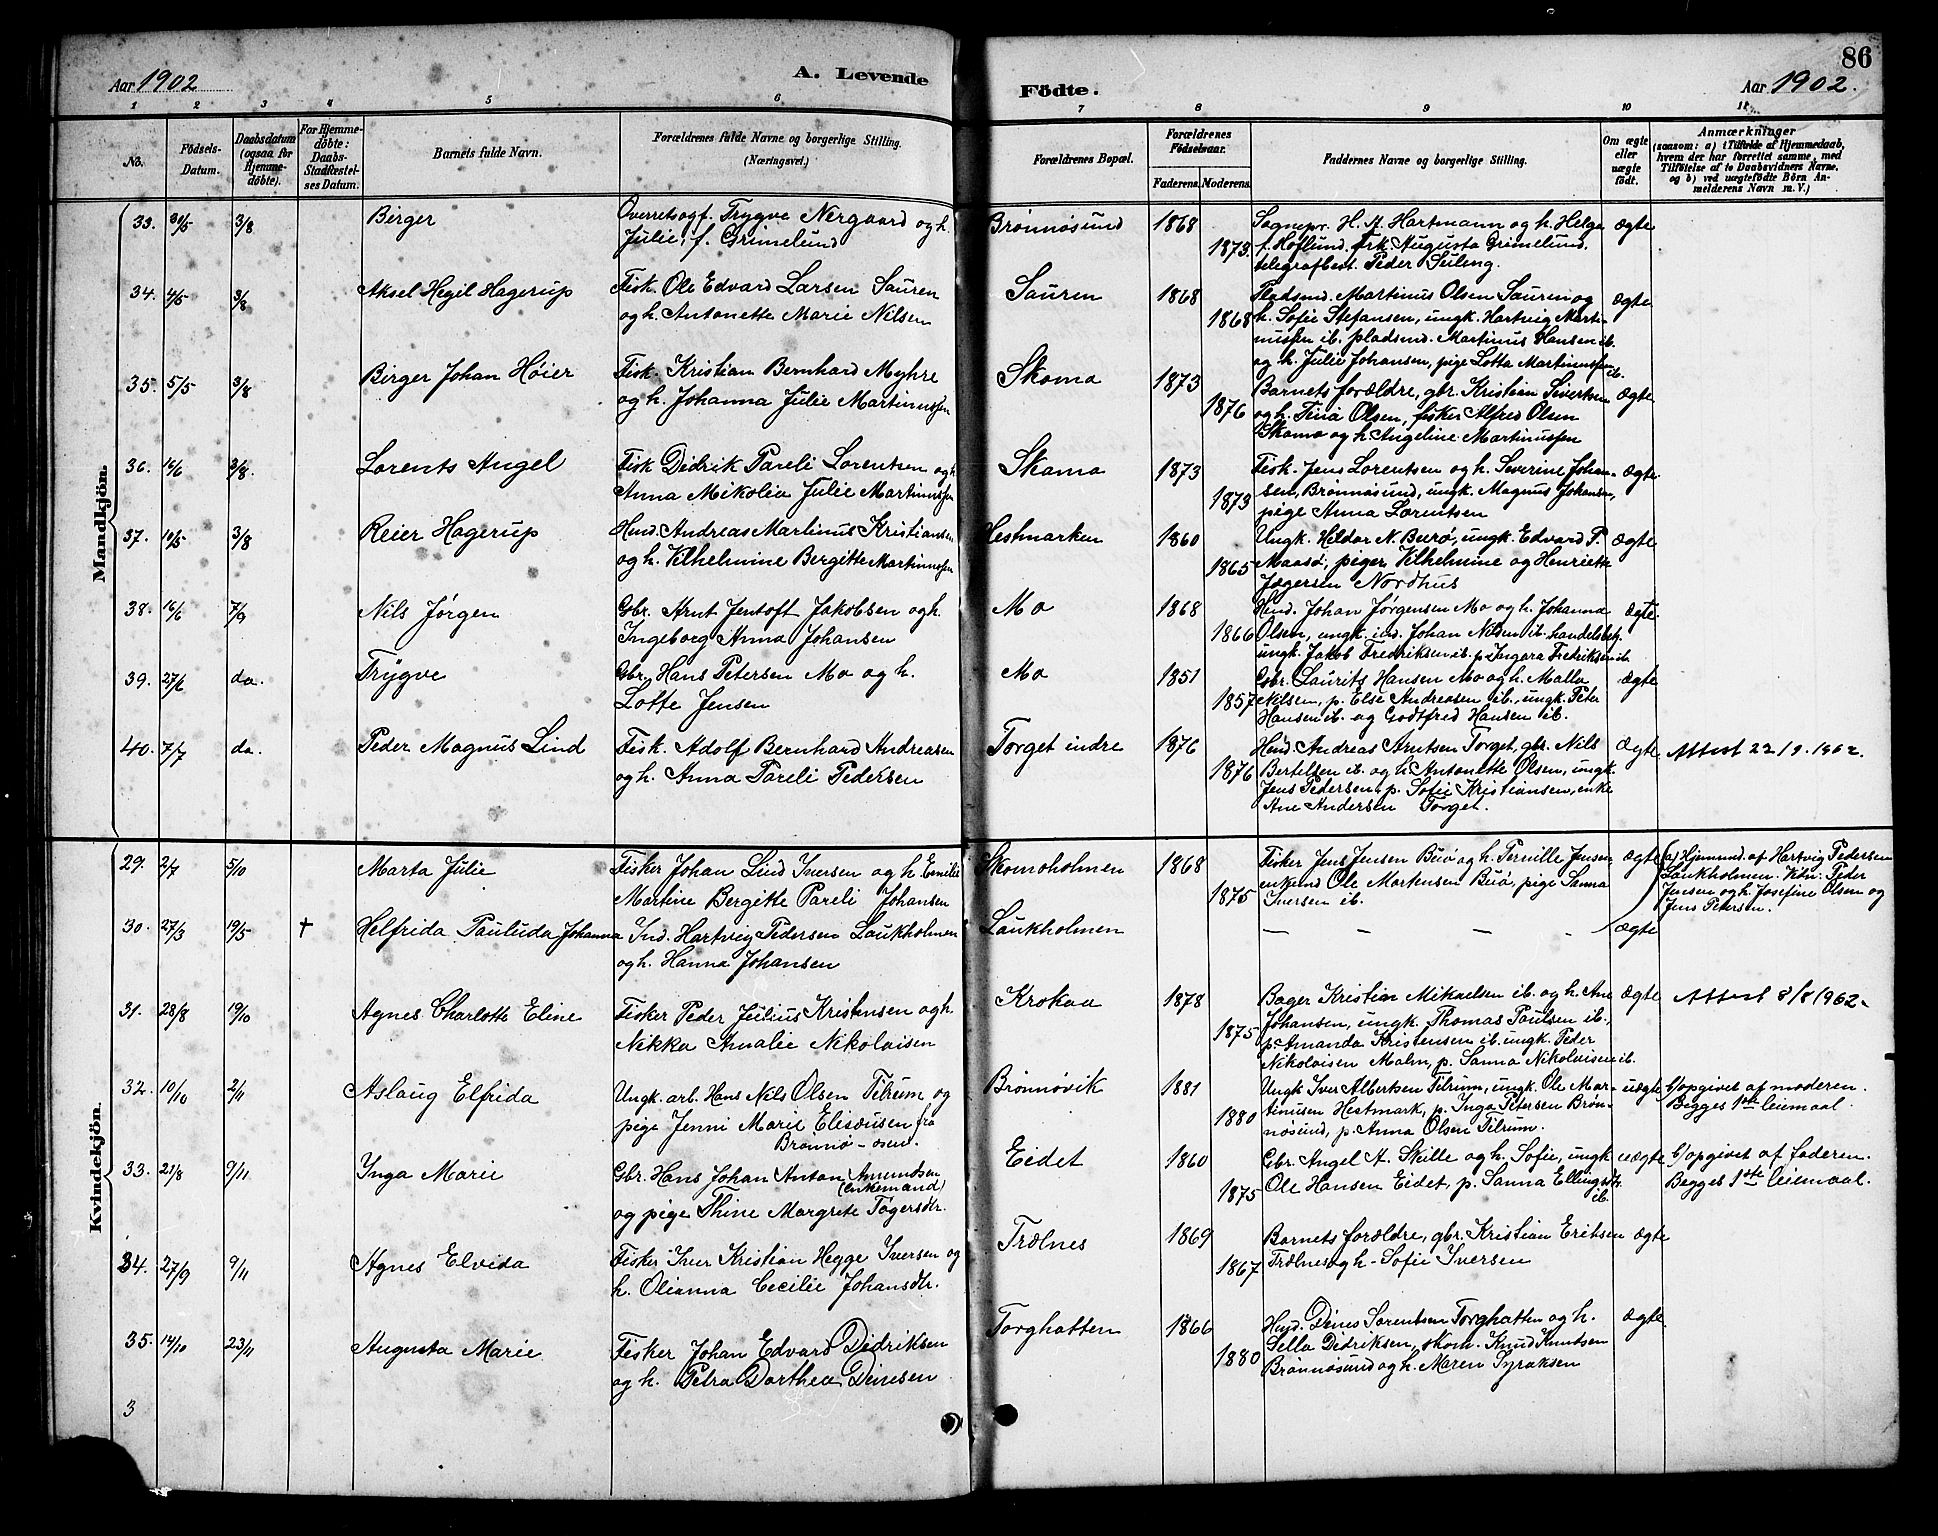 86
Aar 1902
A. Levende
Födte.
Aar 1902.
1 2 3 4 5 6 7 8 9 10 11
No.
Födsels-
Datum.
Daabsdatum
(ogsaa for
Hjemme-
döbte).
For Hjemme-
döbte:
Daabs-
Stadfæstel-
ses Datum.
Barnets fulde Navn.
Forældrenes fulde Navne og borgerlige Stilling.
(Næringsvei.)
Forældrenes Bopæl.
Forældrenes
Födselsaar.
Faderens. Moderens.
Faddernes Navne og borgerlige Stilling.
Om ægte
eller
uægte
födt.
Anmærkninger
(saasom: a) i Tilfælde af Hjemmedaab,
hvem der har forrettet samme, med
Tilföielse af to Daabsvidners Navne,
og b) ved uægtefödte Börn An-
melderens Navn m. V.)
Mandkjön.
33. 30/5 3/8 Birger Overretssagf. Trygve Nergaard og h. Brönnösund 1868 Sognepr. H. A. Hartmann og h. Helga ægte
Julie f. Grimelund 1873. f. Höflund. Frk. Augusta Grimelund.
telegrafbest. Peder Suleng.
34. 4/5 3/8 Aksel Hegil Hagerup Fisk. Ole Edvard Larsen Sauren Sauren 1868 Pladsmd. Martinus Olsen Sauren og ægte
og h. Antonette Marie Nilsen 1868 h. Sofie Stefansen, ungk. Hartvig Marti-
nussen ib. pladsmd. Martinus Hansen ib.
og h. Julie Johansen, pige Lotta Martinussen ib.
35. 5/5 3/8 Birger Johan Höier Fisk. Kristian Bernhard Myhre Skomo 1873 Barnets forældre, gbr. Kristian Sivertsen ægte
og h. Johanna Julie Martinussen 1876 og h. Tina Olsen, fisker Alfred Olsen
Skomo og h. Angeline Martinussen
36. 14/6 3/8. Lorents Angel Fisk. Didrik Pareli Lorentsen og h. Skomo 1873 Fisk. Jens Lorentsen og h. Severine Johan- ægte
Anna Mikolia Julie Martinussen 1873 sen, Brönnösund, ungk. Magnus Johansen,
pige Anna Lorentsen
37. 10/5 3/8 Reier Hagerup Hmd. Andreas Martinus Kristiansen Hestmarken 1860 Ungk. Heldor N. Buö, ungk. Edvard P. ægte
og h. Vilhelmine Bergitte Martinussen 1865 Maasö, piger Vilhelmine og Henriette
Jægersen Nordhus
38. 16/6 7/9 Nils Jörgen Gbr. Arnt Jentoft Jakobsen og h. Mo 1868 Hmd. Johan Jörgensen Mo og h. Johanna ægte.
Ingeborg Anna Johansen 1866 Olsen, ungk. ind. Johan Nilsen ib. handelsbetj.
ungk. Jakob Fredriksen ib. p. Ingara Fredriksen ib.
39. 27/6 do. Trygve Gbr. Hans Petersen Mo og h. Mo 1851 Gbr. Laurits Hansen Mo og h. Malla ægte
Lotte Jensen 1857 Nilsen, p. Else Andreasen ib., ungk. Peter
Hansen ib. og Godtfred Hansen ib.
40. 7/7 do. Peder Magnus Lind Fisk. Adolf Bernhard Andreasen Torget indre 1876 Hmd. Andreas Arntsen Torget, gbr. Nils ægte Attest 22/9.1962.
og h. Anna Pareli Pedersen 1876 Bertelsen ib. og h. Antonette Olsen, ungk.
Jens Pedersen, p. Sofie Kristiansen, enke
Ane Andersen Torget.
Kvindekjön.
29. 2/7 5/10 Marta Julie Fisker Johan Lind Iversen og h. Emilie Skomoholmen 1868 Fisker Jens Jensen Buö og h. Pernille Jensen ægte (a) Hjemmd. af Hartvig Pedersen
Martine Bergitte Pareli Johansen 1875 enkemd Ole Mortensen Buö, pige Sanna Laukholmen. Vidn: Peder
Iversen ib. Jensen og h. Josefine Olsen og
Jens Petersen.
30. 27/3 19/5 † Helfrida Pauluda Johanna Ind. Hartvig Pedersen Laukholmen Laukholmen — — — — ægte
og h. Hanna Johansen
31. 28/8 19/10 Agnes Charlotte Eline Fisker Peder Julius Kristensen og h. Krokaa 1878 Bager Kristian Mikaelsen ib. og h. Ane ægte Attest 8/8 1962.
Nikka Amalie Nikolaisen 1875 Johansen, ungk. Thomas Paulsen ib.,
p. Amanda Kristensen ib. ungk. Peder
Nikolaisen Malm, p. Sanna Nikolaisen ib.
32. 10/10 2/11 Aslaug Elfrida Ungk. arb. Hans Nils Olsen Tilrum og Brönnövik 1881 Ungk Iver Albertsen Tilrum, ungk. Ole Mar- uægte b/ opgivet af moderen.
pige Jenni Marie Elisæusen fra 1880 tinusen Hestmark, p. Inga Petersen Brön- Begges 1ste leiemaal.
Brönnö-sund. nösund, p. Anna Olsen Tilrum.
33. 21/8 9/11 Inga Marie Gbr. Hans Johan Anton Amundsen Eidet 1860 Gbr. Angel A. Skille og h. Sofie, ungk uægte b/ opgivet af faderen.
(enkemand)
og pige Thine Margrete Tøgersdtr. 1875 Ole Hansen Eidet, p. Sanna Ellingsdtr. ib. Begges 1ste leiemaal.
34. 27/9 9/11 Agnes Elvida Fisker Iver Kristian Hegge Iversen og Trælnes 1869 Barnets forældre, gbr. Kristian Eritsen ægte
h. Olianna Cecilie Johansdtr. 1867 Trælnes og h. Sofie Iversen
35. 14/10 23/11 Augusta Marie Fisker Johan Edvard Didriksen Torghatten 1866 Hmd. Dines Sörentsen Torghatten og h. ægte
og h. Petra Dorthea Dinesen 1880 Sella Didriksen, skom. Knud Knutsen
Brönnösund og h. Maren Syraksen
3